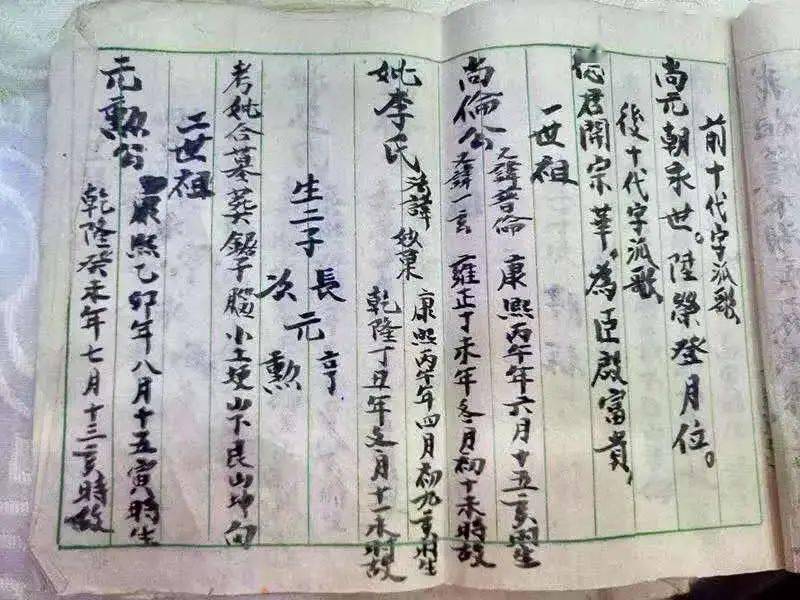 前十代字派歌
尚元朝永世。陸榮登月位。
後十代字派歌
君開宗華，為臣啟富貴，
一世祖
尚倫公 元諱普倫 康熙丙午年六月十五亥時生
元諱一言 雍正丁未年冬月初十未時故
妣李氏 諱妙菓 康熙丙午年四月初九亥時生
乾隆丁丑年冬月十一未時故
生二子 長元亨
次元勲
考妣合墓葵鋸子腦小土埂山下艮山坤向
二世祖
元勲公 康熙乙卯年八月十五寅時生
乾隆癸未年七月十三亥時故